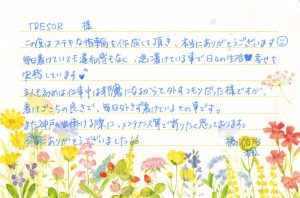 TRESOR 様
この度はステキな指輪を作成して頂き、本当にありがとうございます
毎日着けていても違和感もなく、逆に着けている事で日々の生活に幸せを
実感しています
主人も初めは仕事中は邪魔になるからと外すつもりだった様ですが、
着けごこちの良さで、毎日外さず着けているその事です。
また神戸へ出掛ける際に、メンテナンス等で寄りたいと思っております。
本当にありがとうございました